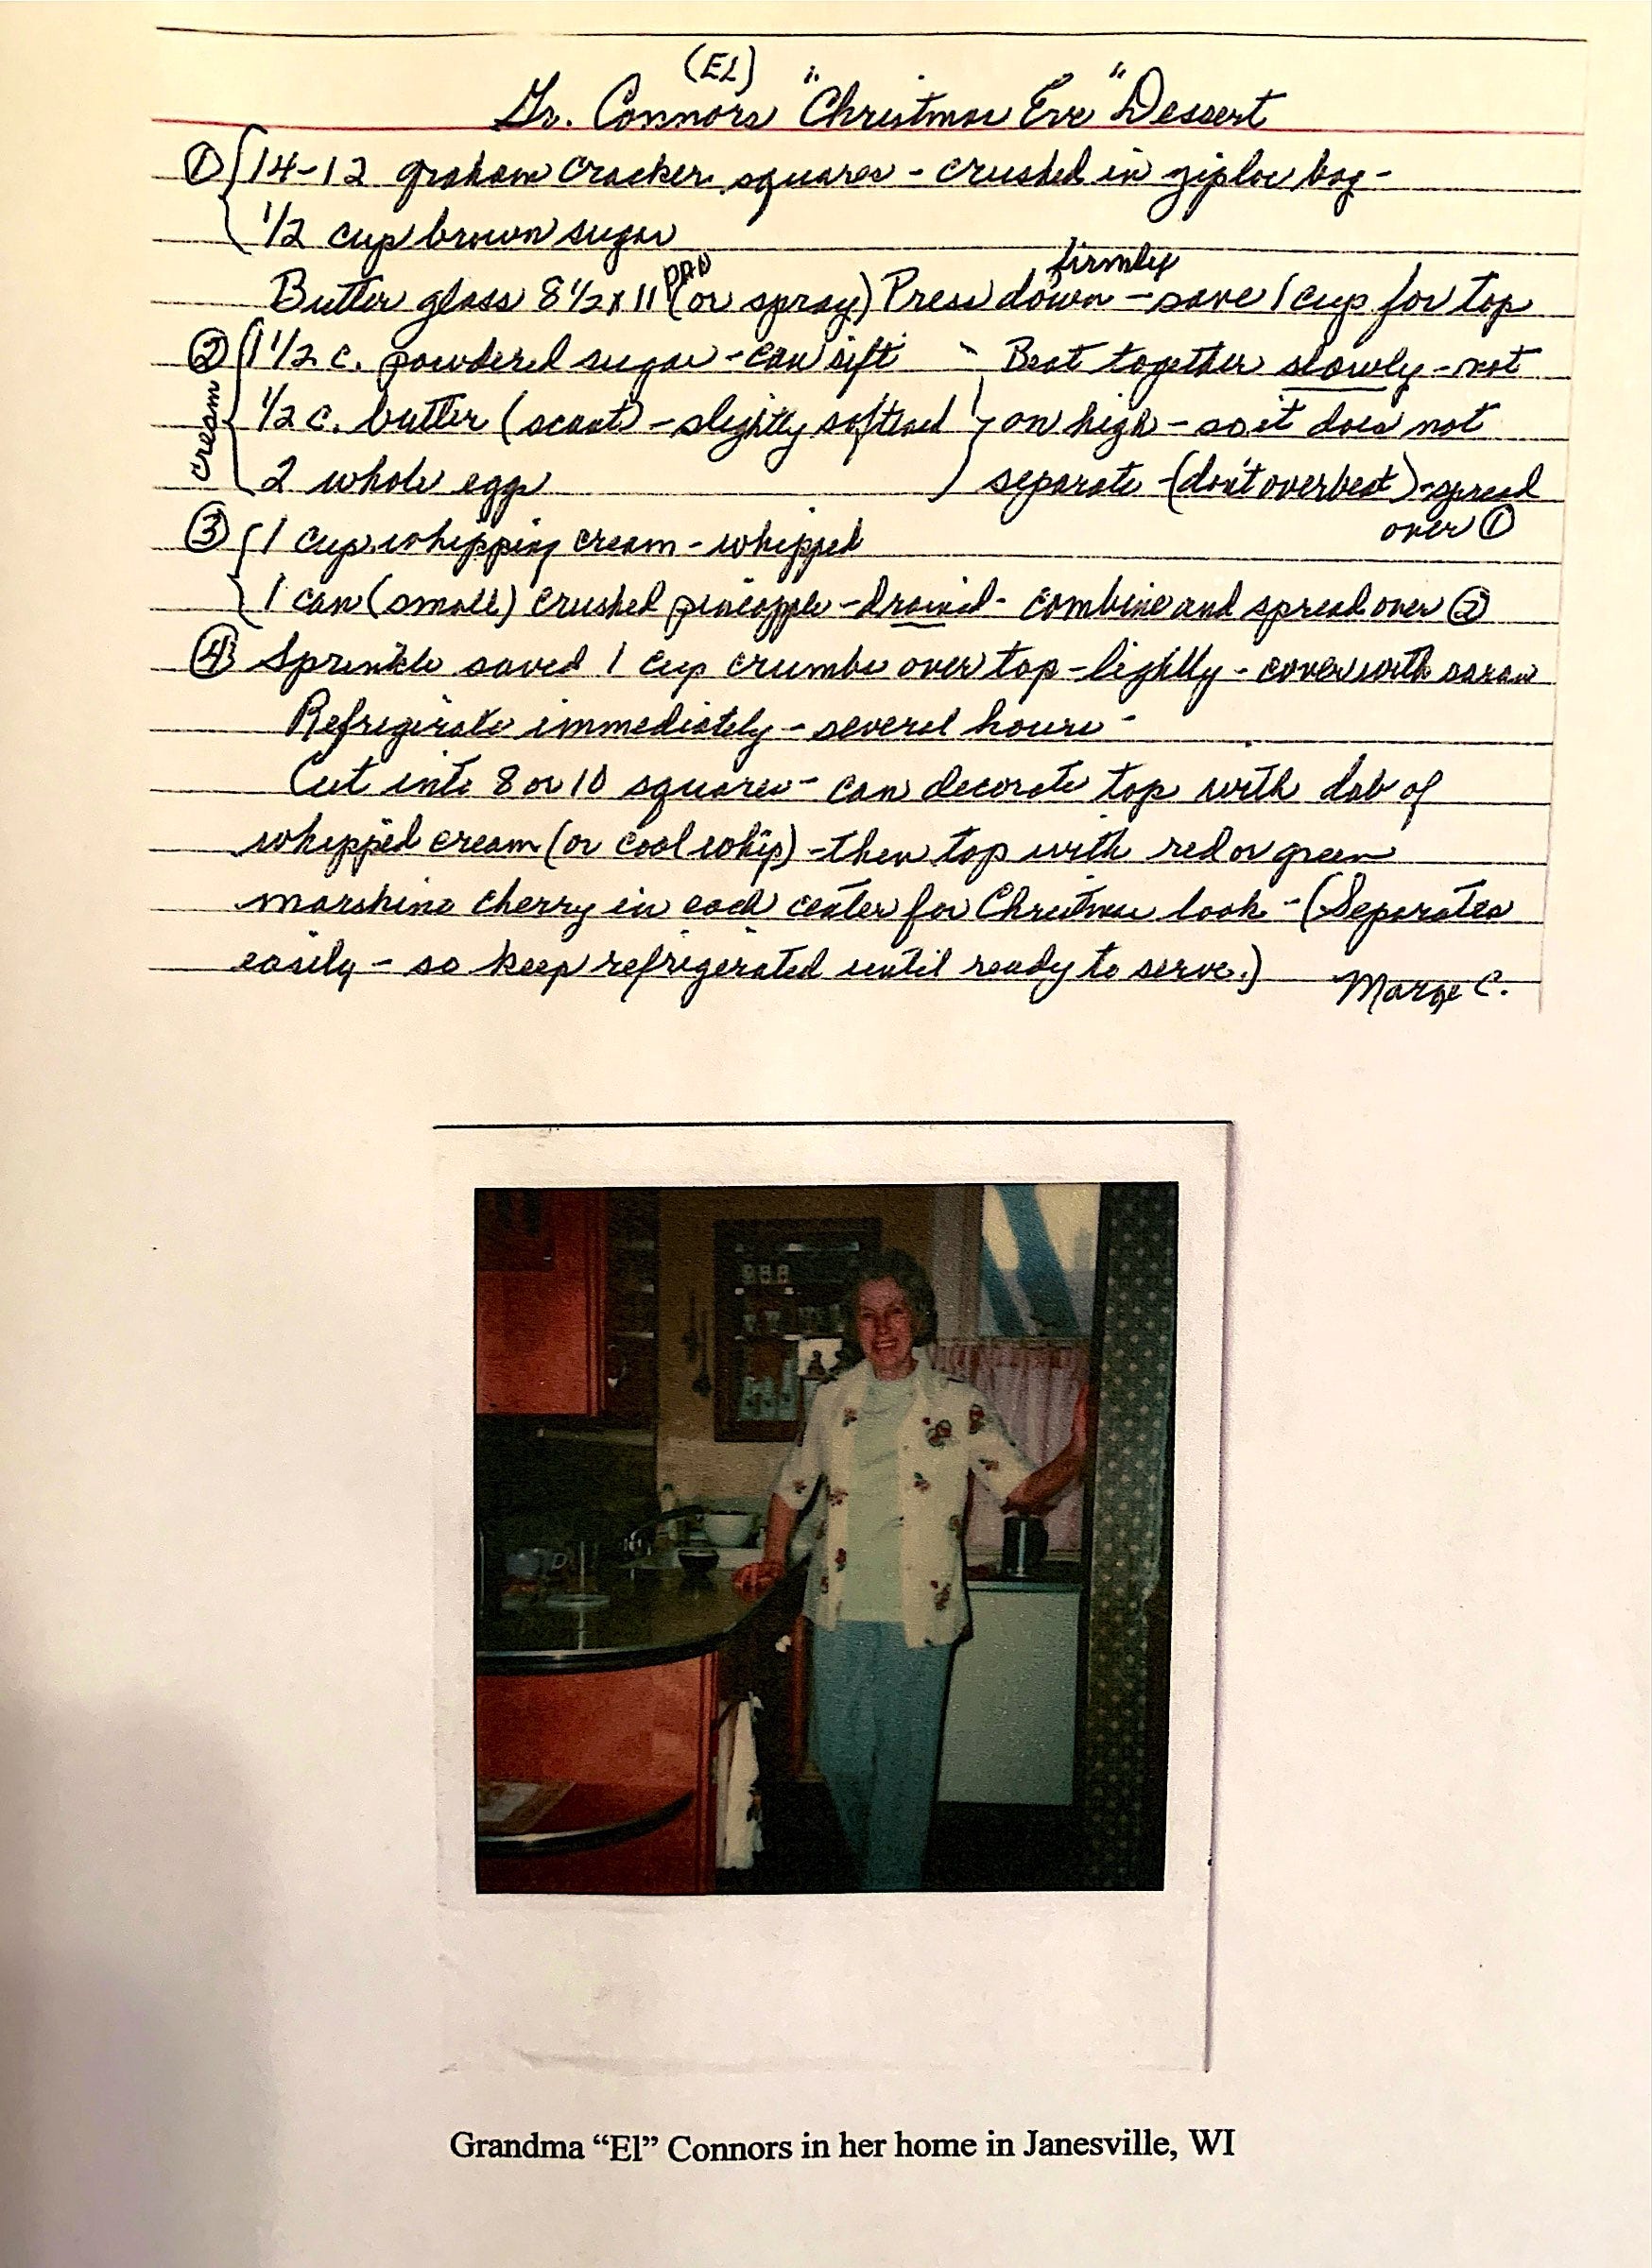 (EL)
Gr. Connors "Christmas Eve" Dessert
① 14-12 graham cracker squares - crushed in ziploc bag -
1/2 cup brown sugar
Butter glass 8 1/2 x 11 pan (or spray) Press down firmly - save 1 cup for top
② 1 1/2 c. powdered sugar - can sift - Beat together slowly - not
cream 1/2 c. butter (scant) - slightly softened on high - so it does not
2 whole eggs separate - (don't overbeat) - spread
over ①
③ 1 cup whipping cream - whipped
1 can (small) crushed pineapple - drained - combine and spread over ②
④ Sprinkle saved 1 cup crumbs over top - lightly - cover with saran
Refrigerate immediately - several hours -
Cut into 8 or 10 squares - can decorate top with dab of
whipped cream (or cool whip) - then top with red or green
marshino cherry in each center for Christmas look - (Separates
easily - so keep refrigerated until ready to serve.) Marge C.
Grandma “El” Connors in her home in Janesville, WI